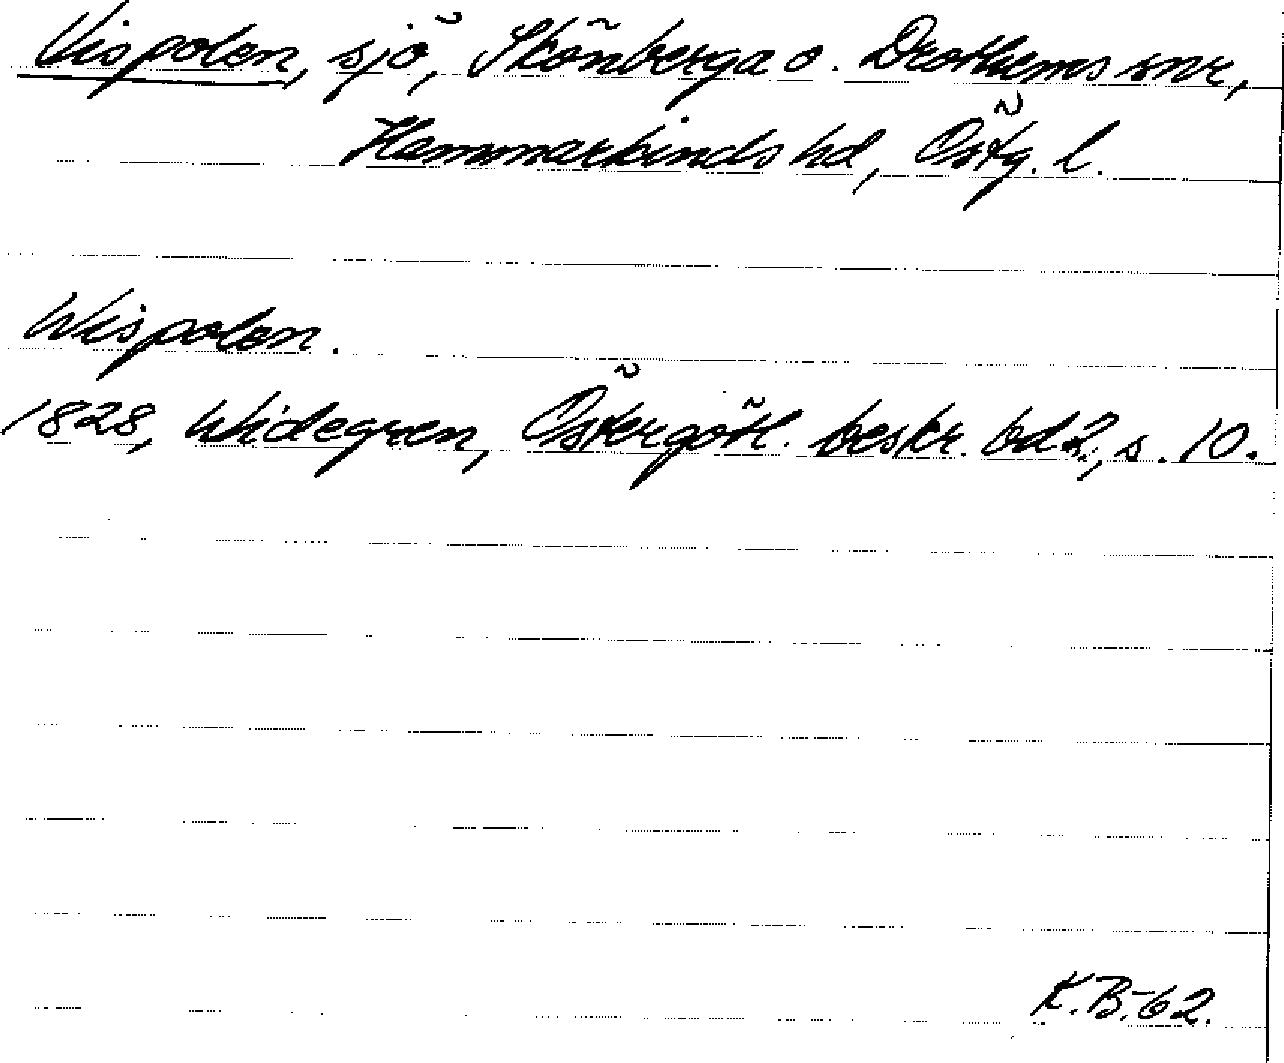 Vispolen, sjö, Skönberga o. Drothems snr,
Hammarkinds hd, Östg. l.
Wispolen.
1828, Widegren, Östergötl. beskr. bd 2, s. 10.
K.B.-62.